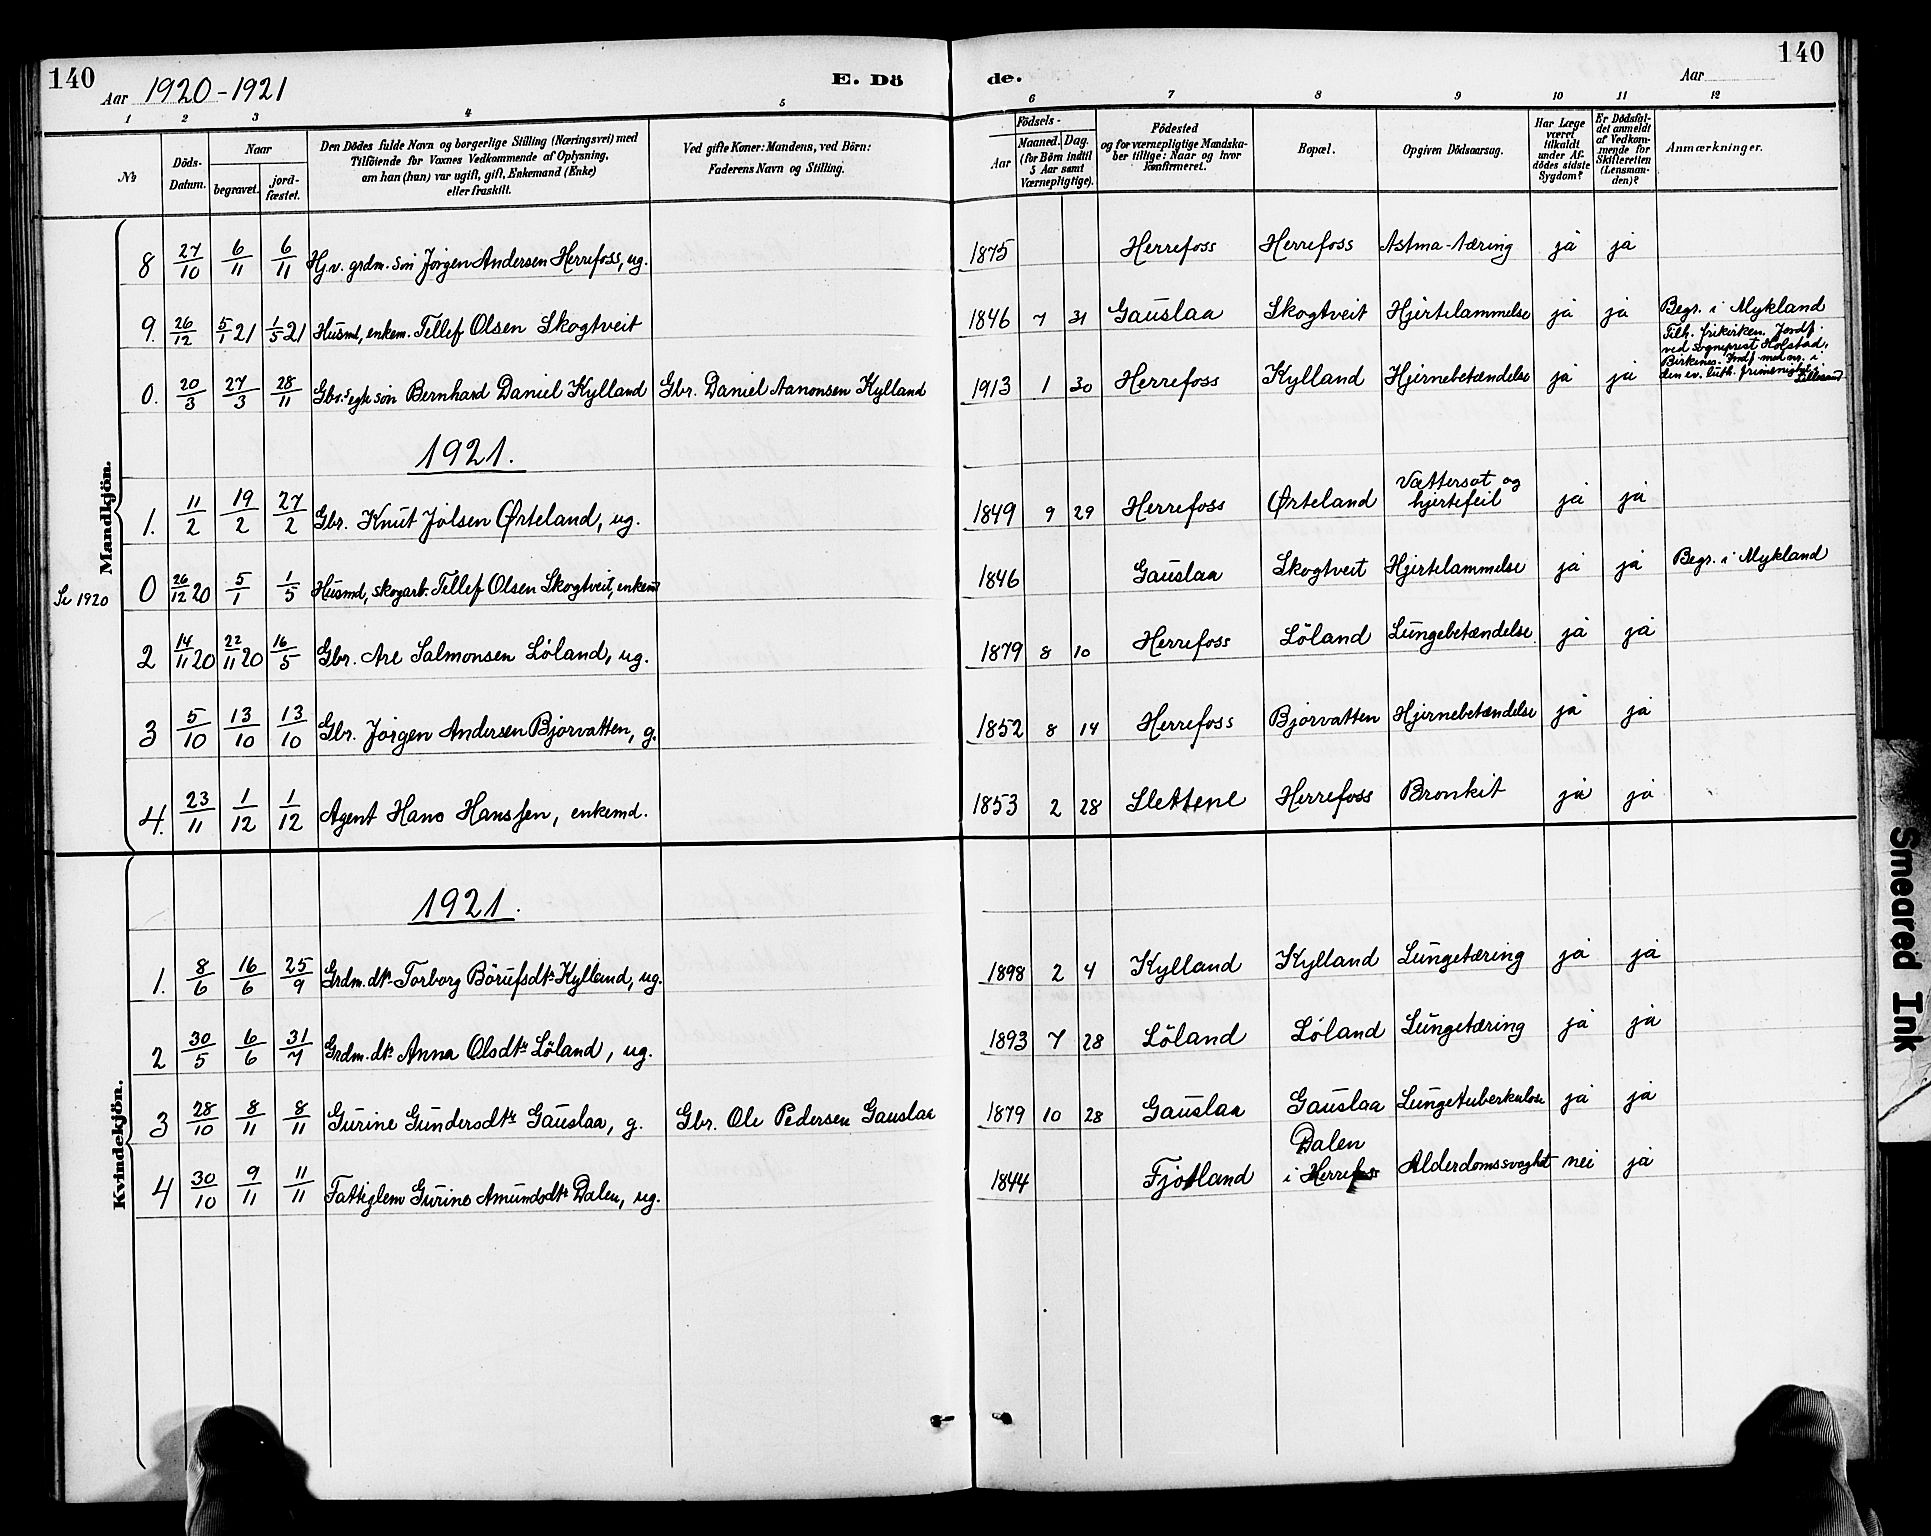 140
Aar 1920-1921
E. Dö
de.
Aar
140
1 2 3 4 5 6 7 8 9 10 11 12
No
Döds-Datum.
Naar
begravet.
jord-fæstet.
Den Dödes fulde Navn og borgerlige Stilling (Næringsvei) med
Tilföiende for Voxnes Vedkommende af Oplysning,
om han (hun) var ugift, gift, Enkemand (Enke)
eller fraskilt.
Ved gifte Koner: Mandens, ved Börn:
Faderens Navn og Stilling.
Födsels-
Aar
Maaned. Dag.
(for Börn indtil
5 Aar samt
Værnepligtige).
Födested
og for værnepligtige Mandska-
ber tillige: Naar og hvor
Konfirmeret.
Bopæl.
Opgiven Dödsaarsag.
Har Læge
været
tilkaldt
under Af-
dödes sidste
Sygdom?
Er Dödsfal-
det anmeldt
af Vedkom-
mende for
Skifteretten
(Lensman-
den)?
Anmærkninger.
Mandkjön.
8 27/10 6/11 6/11 Hj.v. grdm. sön Jörgen Andersen Herrefoss, ug. 1875 Herrefoss Herrefoss Astma-tæring ja ja
9. 26/12 5/1 21 1/5 21 Husmd, enkem. Tellef Olsen Skogtveit 1846 7 31 Gauslaa Skogtveit Hjertelammelse ja ja Begr. i Mykland
0. 20/3 27/3 28/11 Gbr.s egte sön Bernhard Daniel Kylland Gbr. Daniel Aanonsen Kylland 1913 1 30 Herrefoss Kylland Hjernebetændelse ja ja
Tilh. frikirken. Jordf.
ved sogneprest Holstad,
Birkenes.
den ev. luth. frimenighet i
Lillesand
1921.
1. 11/2 19/2 27/2 Gbr. Knut Jölsen Ørteland, ug. 1849 9 29 Herrefoss Ørteland Vattersot og hjertefeil ja ja
Se 1920 0 26/12 20 5/1 1/5 Husmd, skogarb. Tellef Olsen Skogtveit, enkemd 1846 Gauslaa Skogtveit Hjertelammelse ja ja Begr. i Mykland
2 14/11 20 22/11 20 16/5 Gbr. Are Salmonsen Löland, ug. 1879 8 10 Herrefoss Löland Lungebetændelse ja ja
3 5/10 13/10 13/10 Gbr. Jörgen Andersen Bjorvatten, g. 1852 8 14 Herrefoss Bjorvatten Hjernebetændelse ja ja
4. 23/11 1/12 1/12 Agent Hans Hanssen, enkemd. 1853 2 28 Slettene Herrefoss Bronkit ja ja
Kvindekjön.
1921.
1. 8/6 16/6 25/9 Grdm. dtr Torborg Börufsdtr Kylland, ug. 1898 2 4 Kylland Kylland Lungetæring ja ja
2 30/5 6/6 31/7 Grdm. dtr Anna Olsdtr Löland, ug. 1893 7 28 Löland Löland Lungetæring ja ja
3 28/10 8/11 8/11 Gurine Gundersdtr Gauslaa, g. Gbr. Ole Pedersen Gauslaa 1879 10 28 Gauslaa Gauslaa Lungetuberkulose ja ja
4 30/10 9/11 11/11 Fattiglem Gurine Amundsdtr Dalen, ug. 1844 Fjotland Dalen i Herrefos Alderdomssvaghet nei ja
Smeared Ink